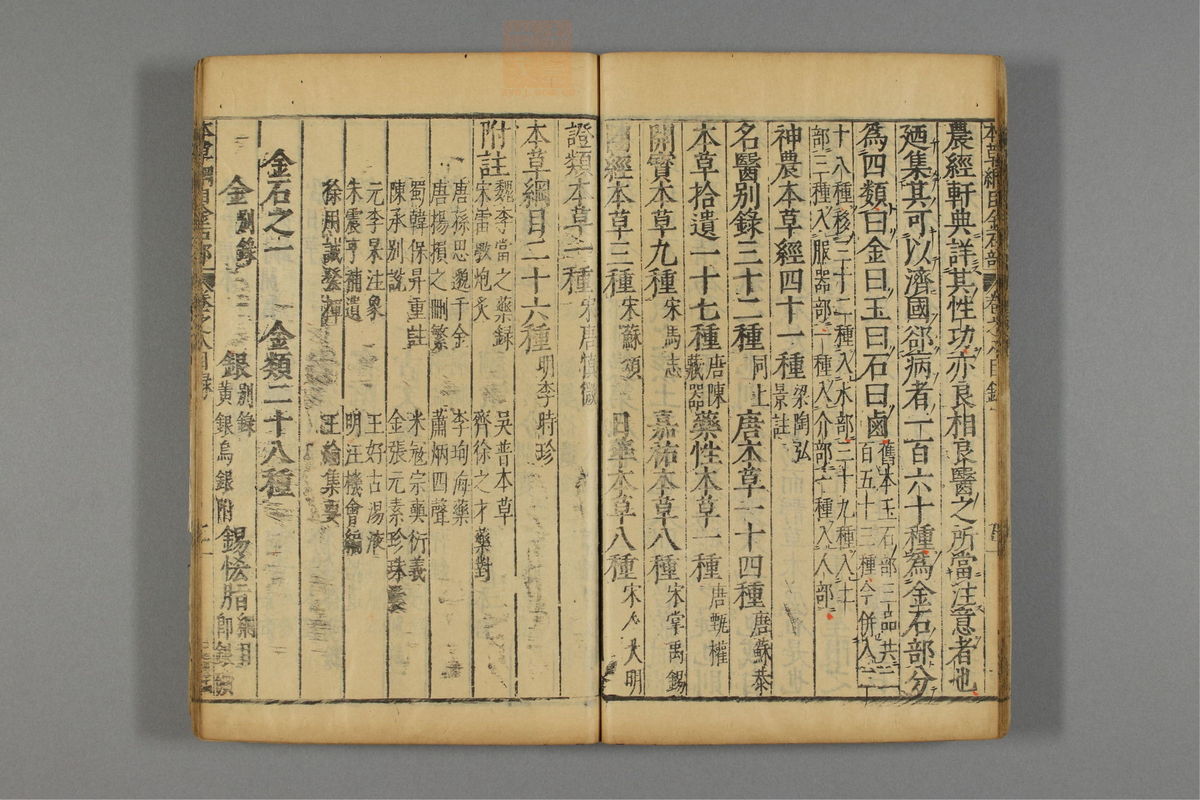 農經軒典詳其性功亦良相良醫之所當注意者也
廼集其可以濟國郤病者一百六十種為金石部分
為四類曰金曰玉曰石曰鹵舊本玉石部三品共二
百五十三種今併入二十
八種移三十二種入水部三十九種入土
部三種入服器部一種入介部一種入人部
神農本草經四十一種梁陶弘
景註
名醫別錄三十二種同上 唐本草一十四種唐蘇恭
本草拾遺一十七種唐陳
藏器 藥性本草一種唐甄權
開寶本草九種宋馬志 嘉祐本草八種宋掌禹錫
圖經本草三種宋蘇頌 日華本草八種宋人大明
證類本草一種宋唐慎微
本草綱目二十六種明李時珍
附註
魏李當之藥錄 吳普本草
宋雷斆炮炙 齊徐之才藥對
唐孫思邈千金 李珣海藥
唐楊損之刪繁 蕭炳四聲
蜀韓保昇重註 宋寇宗奭衍義
陳承別說 金張元素珍珠囊
元李杲法象 王好古湯液
朱震亨補遺 明汪機會編
徐用誠發揮 王綸集要
金石之一 金類二十八種
金別錄 銀別錄
黃銀烏銀附 錫恡脂綱目
即銀礦
本草綱目金石部 卷之八目錄